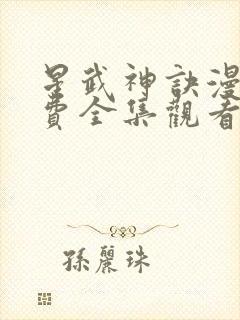 星武神訣漫
費全集觀看
孫麗珠